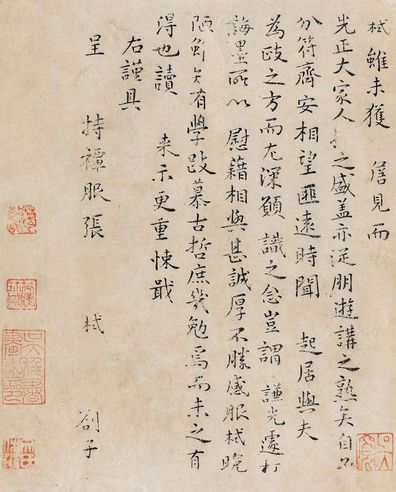 栻雖未獲 詹見而
光正大家人之盛蓋亦從朋遊講之熟矣自公
分符齊安相望匪遠時聞 起居與夫
為政之方而尤深願識之念豈謂 謙光遽枉
誨墨所以慰藉相與甚誠厚不勝感服栻晚
陋 有學 慕古哲庶幾勉焉而未之有
得也讀 來示更重悚戢
右謹具
呈 持禫服張 栻 劄子